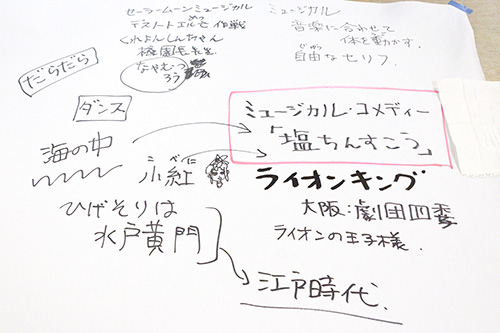 セーラームーンミュージカル
デスノート エルモ 作戦
くれよんしんちゃん
なやむっ
ろう
ミュージカル
音楽に合わせて
体を動かす.
自由なセリフ.
だらだら
ダンス
海の中
小紅
べに
ミュージカル・コメディー
「塩ちんすこう」
ライオンキング
大阪:劇団四季
ライオンの王子様.
ひげそりは
水戸黄門
江戸時代.